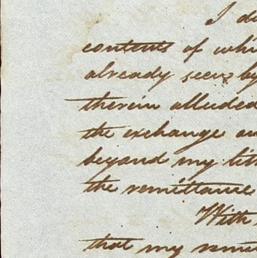 I d
contents of whi
already seen by
therein alluded
the exchange an
beyand my lit
the remittance
With
that my remit